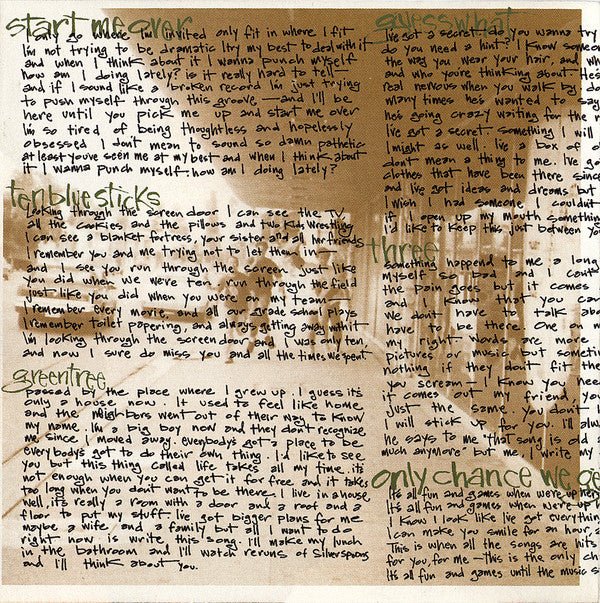 start me over
I only go where I'm invited only fit in where I fit
I'm not trying to be dramatic I try my best to deal with it
and when I think about it I wanna punch myself
how am I doing lately? is it really hard to tell—
and if I sound like a broken record I'm just trying
to push myself through this groove—and I'll be
here until you pick me up and start me over
I'm so tired of being thoughtless and hopelessly
obsessed I don't mean to sound so damn pathetic
at least you've seen me at my best and when I think about
it I wanna punch myself—how am I doing lately?
ten blue sticks
Looking through the screen door I can see the TV,
all the cookies and the pillows and two kids wrestling
I can see a blanket fortress, your sister and all her friends
I remember you and me trying not to let them in
and I see you run through the screen just like
you did when we were ten run through the field
just like you did when you were on my team
I remember every movie, and all our grade school plays
I remember toilet papering, and always getting away with it
I'm looking through the screen door and I was only ten
and now I sure do miss you and all the times we spent
greentree
passed by the place where I grew up. I guess it's
only a house now. It used to feel like home
and the neighbors went out of their way to know
my name. I'm a big boy now and they don't recognize
me since I moved away. everybody's got a place to be
everybody's got to do their own thing. I'd like to see
you but this thing called life takes all my time. it's
not enough when you can get it for free and it takes
too long when you don't want to be there. I live in a house
well, it's really a room with a door and a roof and a
floor to put my stuff. I've got bigger plans for me
maybe a wife and a family but all I want to do
right now is write this song. I'll make my lunch
in the bathroom and I'll watch reruns of Silverspoons
and I'll think about you.
guess what
I've got a secret—do you wanna try
do you need a hint? I know someon
the way you wear your hair, and wh
and who you're thinking about—He's
real nervous when you walk by do
many times he's wanted to say
he's going crazy waiting for the
I've got a secret—something I will
I might as well. I've a box of o
don't mean a thing to me. I've go
clothes that have been there since
and I've got ideas and dreams but
I wish I had someone I couldn't
if I open up my mouth somethin
I'd like to keep this just between yo
three
something happend to me a long
myself so bad and I can't
the pain goes but it comes
and I know that you car
we don't have to talk abo
have to be there. One on m
my right—words are more
pictures or music but someti
nothing if they don't fit the
you scream—I know you need
it comes out my friend, you
just the same. you don't
I will stick up for you. I'll alwa
he says to me "that song is old a
much anymore" but me, I write my
only chance we ge
It's all fun and games when we're up her
It's all fun and games when we're up h
I know I look like I've got everything
I can make you smile for an hour, a
This is when all the songs are hits
for you, for me—This is the only ch
It's all fun and games until the music s